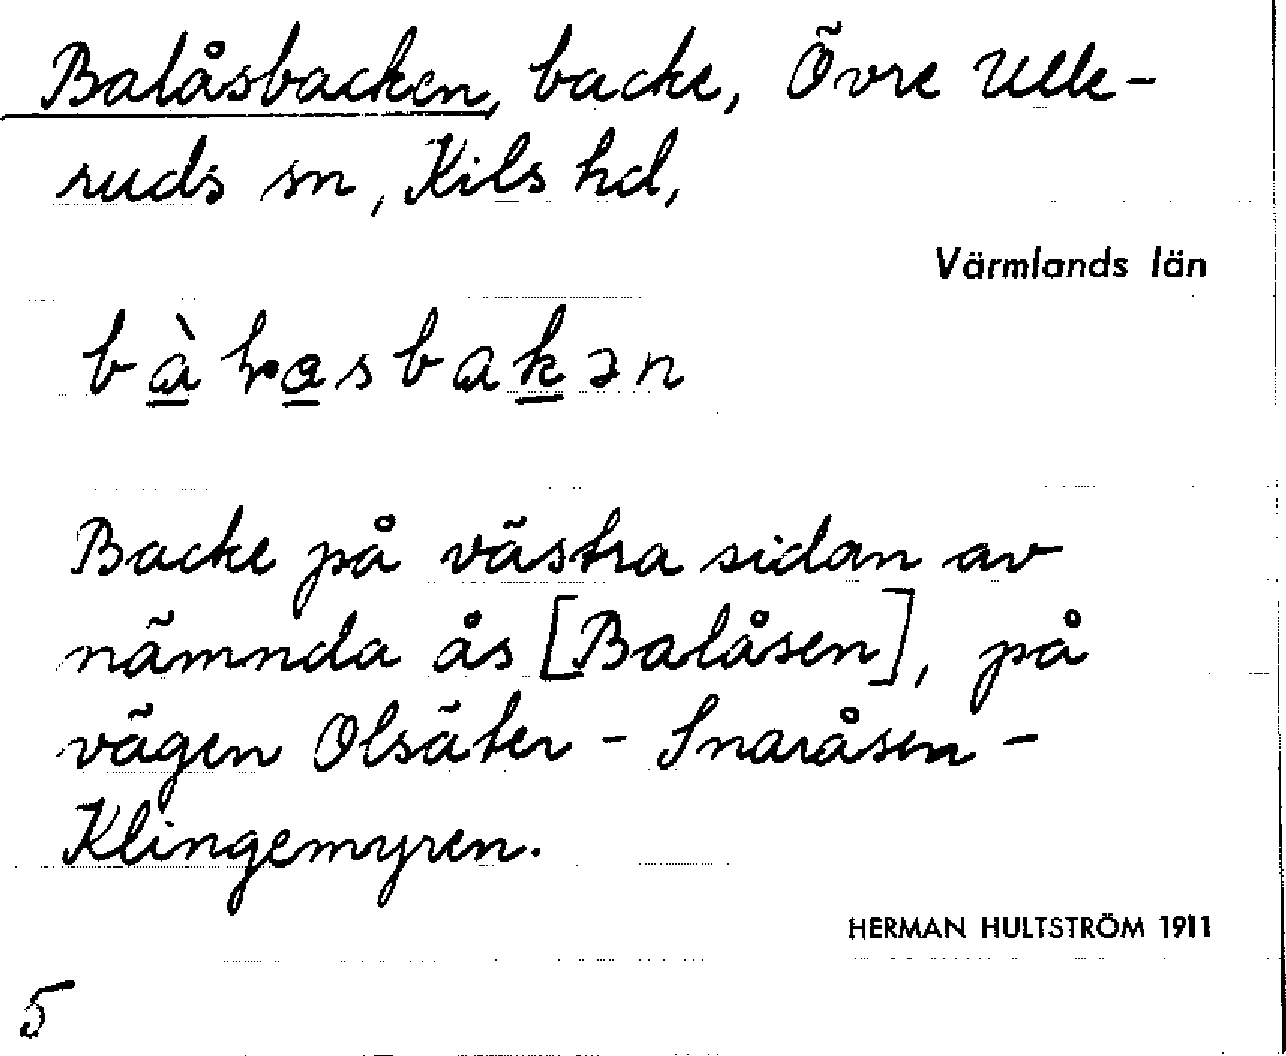 Balåsbacken, backe, Övre Ulle-
ruds sn, Kils hd,
Värmlands län
Backe på västra sidan av
nämnda ås [Balåsen], på
vägen Olsäter - Snaråsen -
Klingemyren.
HERMAN HULTSTRÖM 1911
5